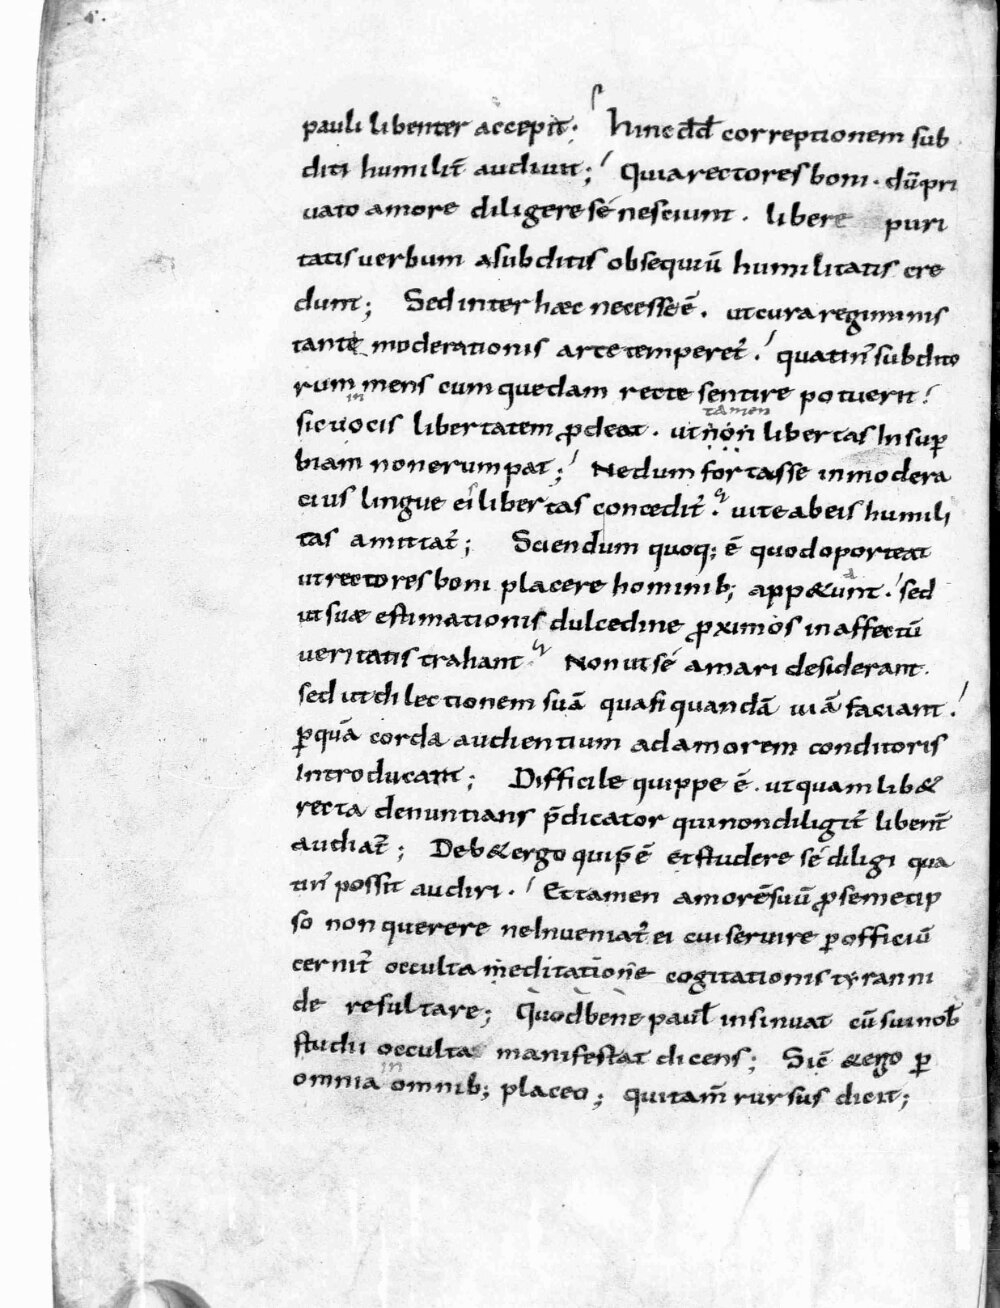 pauli libenter accepit· hinc dđ correptionem sub
diti humilit̄ audivit; Quia rectores boni· dū pri
vato amore diligere sé nesciunt· libere puri
tatis verbum a subditis obsequiū humilitatis cre
dunt; Sed inter hæc necesse ē· ut cura regiminis
tante moderationis arte temperet̄· quatin̄ subdito
rum mens cum quedam recte sentire potuerit
in
sic vocis libertatem ꝓdeat· ut non libertas In suꝑ
tamen
biam non erumpat; Ne dum fortasse inmodera
cius lingue eis libertas concedit̄· vite ab eis humili
tas amittat̄; Sciendum quoq; ē quod oporteat
ut rectores boni placere hominib; app&unt· sed
d
ut suæ estimationis dulcedine ꝓximos in affectū
veritatis trahant Non ut sé amari desiderant·
sed ut dilectionem suā quasi quandā viā faciant·
ꝑquā corda audientium ad amorem conditoris
Introducant; Difficile quippe ē· ut quamlib&
recta denuntians p̄dicator qui non diligit̄ libent̄
audiat̄; Deb& ergo qui p̄ ē et studere sé diligi qua
tin̄ possit audiri· Et tamen amorē suū ꝓ semetip
so non querere ne Inveniat̄ ei cui servire ꝑ officiū
cernit̄ occulta meditatione cogitationis tyranni
de resultare; Quod bene paul̄ insinuat cū sui nob̄
studii occulta manifestat dicens; Sic̄ & ego ꝑ
in
omnia omnib; placeo; qui tam̄ rursus dicit;